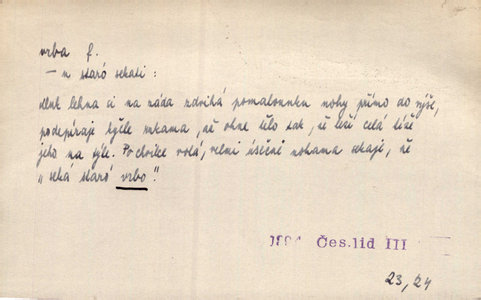 vrba f.
— u staró sekati:
kluk lehna si na záda zdvihá pomalounku nohy přímo do výše,
podepíraje kyčle rukama, až ohne tělo tak, že leží celá tíže
jeho na týle. Po chvilce volá, velmi úsečně nohama sekaje, že
„seká staró vrbo".
1894 Čes. lid III
23, 24